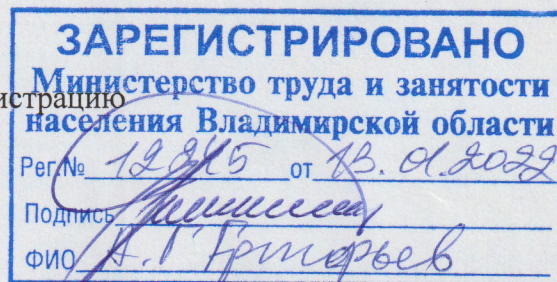 ЗАРЕГИСТРИРОВАНО
Министерство труда и занятости
истрацию
населения Владимирской области
Рег.№ 12345 от 13.01.2022
Подпись
ФИО А.Г Григорьев